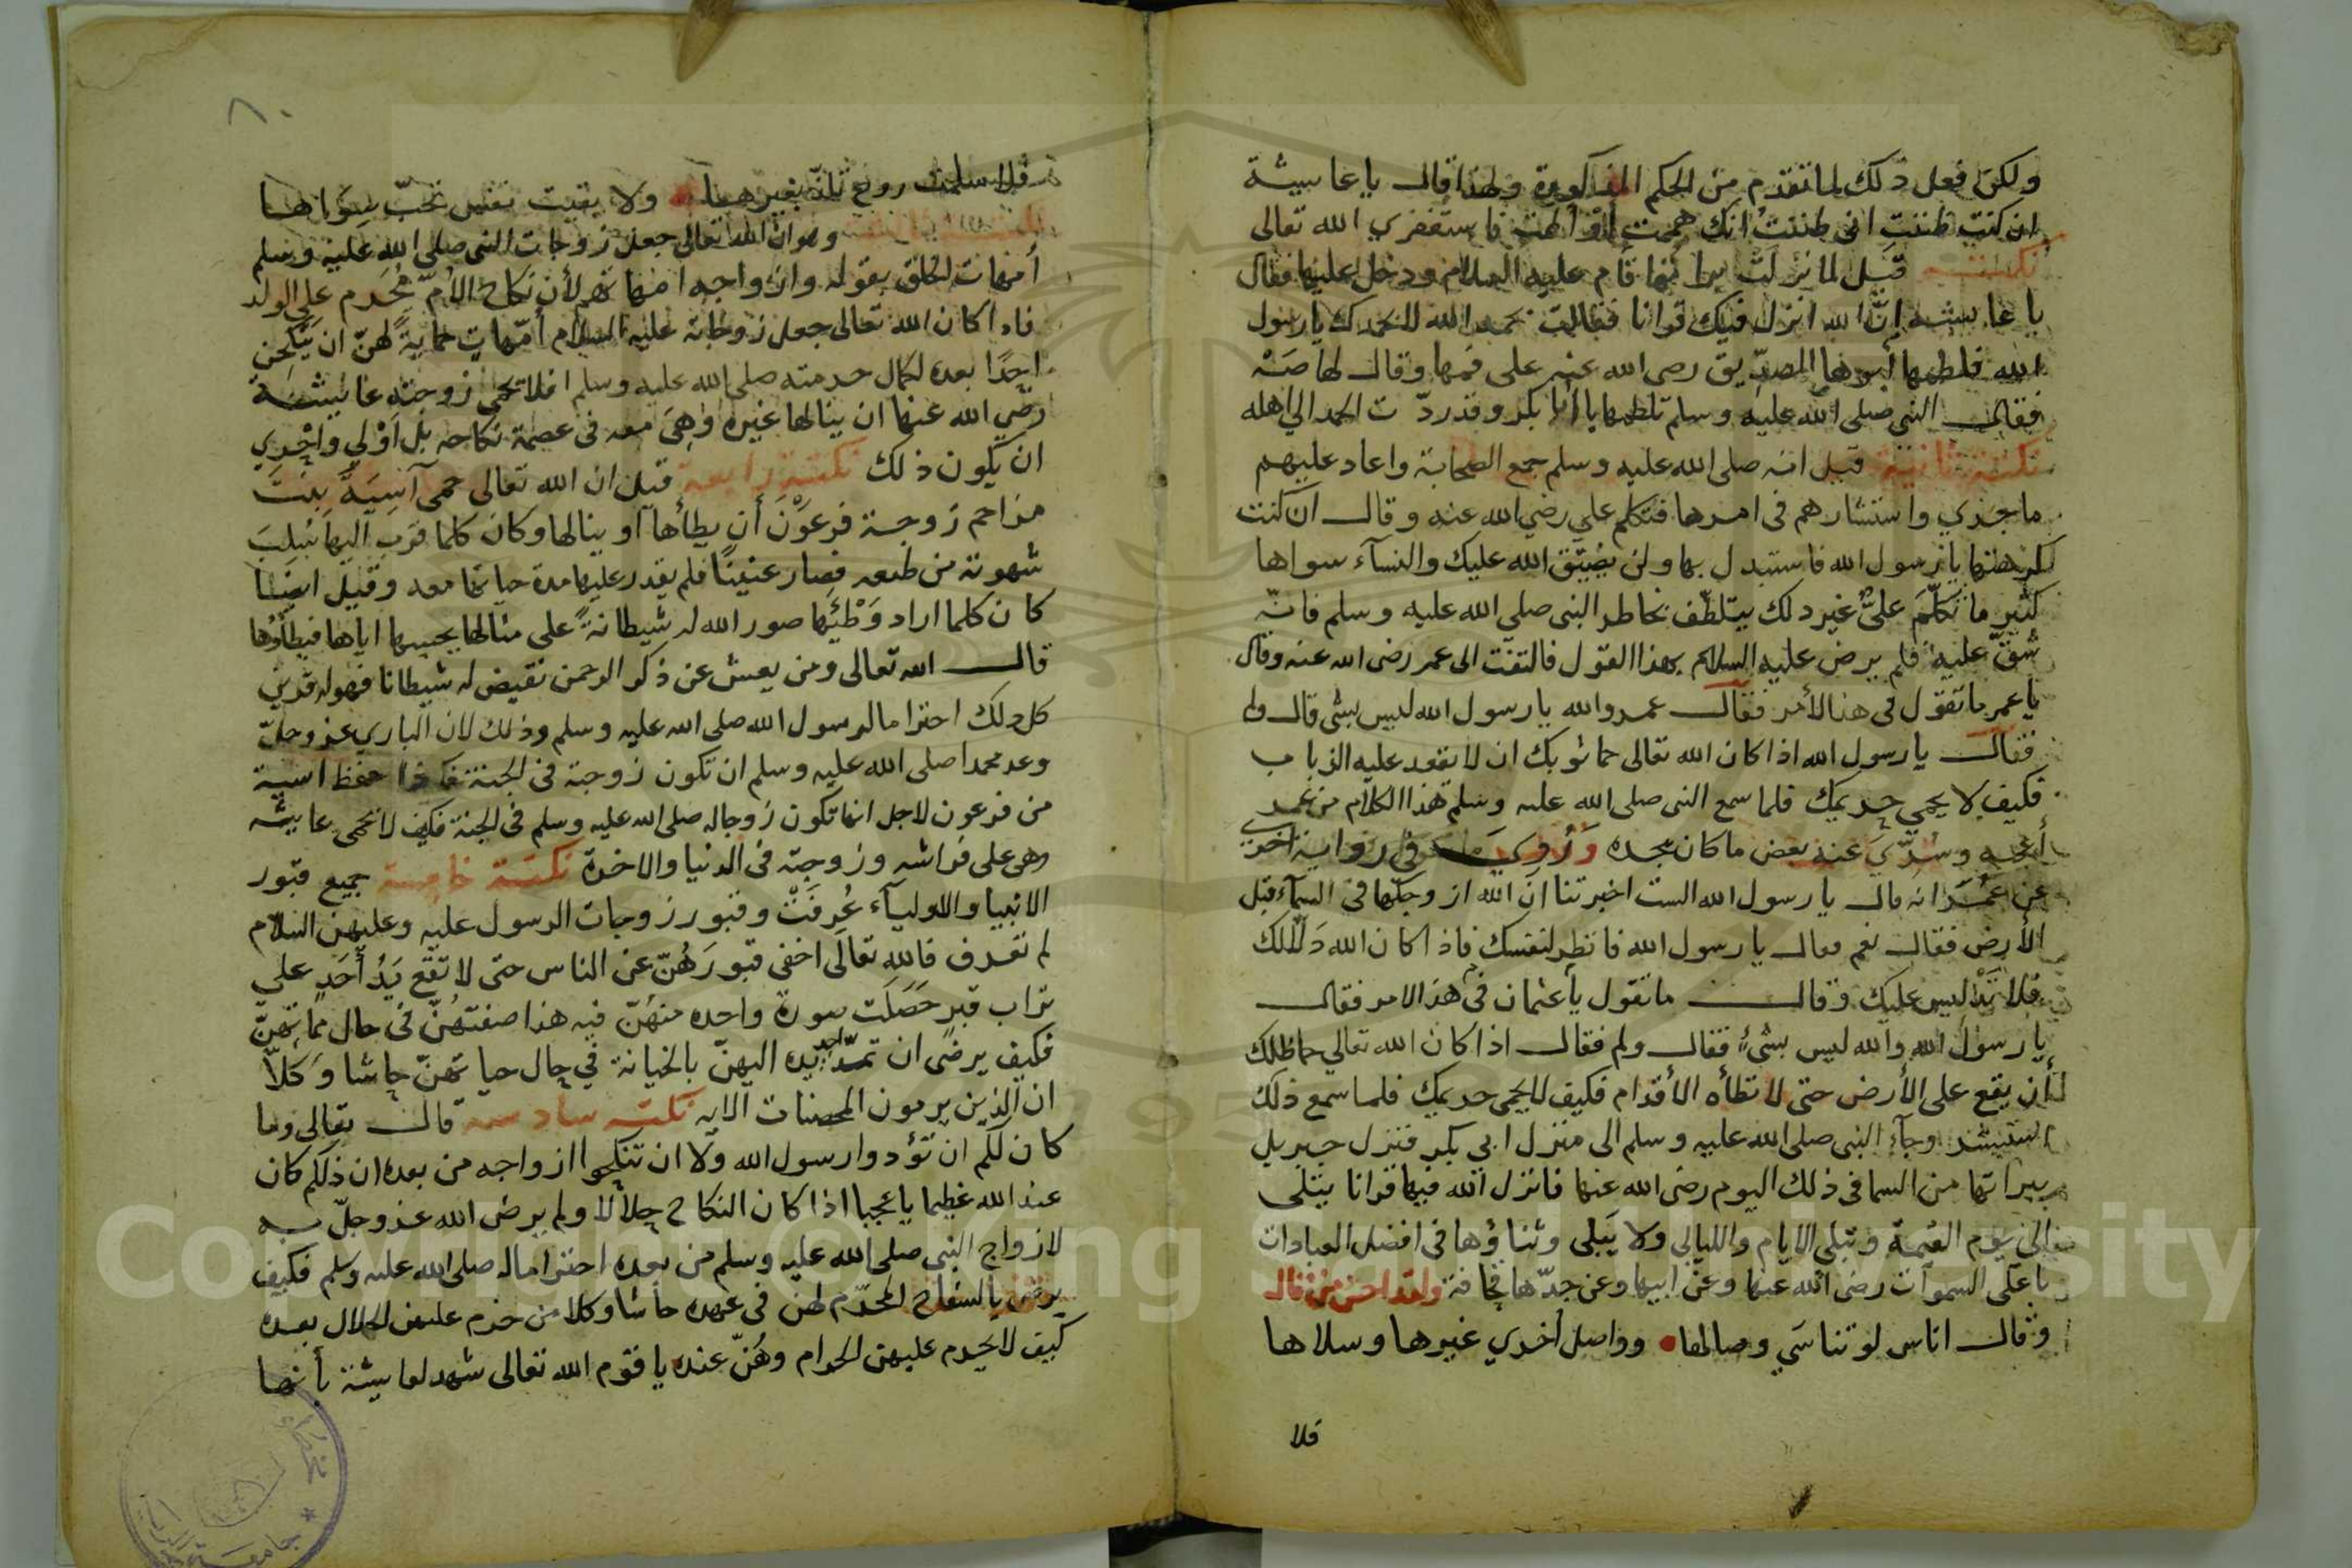 ولكن فعل ذلك لما تقدم من الحكم المذكورة ولهذا قال يا عايشة
ان كنت ظننت انى ظننت انك هممت او الممت فاستغفري الله تعالى
نكتة قيل لما نزلت براتها قام عليه السلام ودخل عليها فقال
يا عايشه انّ الله انزل فيك قرانا فقالت نحمد الله لا نحمدك يا رسول
الله فلطمها أبوها الصدّيق رضى الله عنه على فمها وقال لها صَهْ
فقال النبى صلى الله عليه وسلم تلطمها يا أبا بكر وقد ردّت الحمد الي اهله
نكتة ثانية قيل انه صلى الله عليه وسلم جمع الصحابة واعاد عليهم
ما جري واستشارهم فى امرها فتكلم علي رضي الله عنه وقال ان كنت
كرهتها يا رسول الله فاستبدل بها ولن يضيّق الله عليك والنسآء سواها
كثير ما تكلّمَ علىٌّ غير ذلك يتلطّف بخاطر النبى صلى الله عليه وسلم فانّه
شقّ عليه فلم يرض عليه السلام بهذا القول فالتفت الى عمر رضى الله عنه وقال
يا عمر ما تقول فى هذا الأمر فقال عمر والله يا رسول الله ليس بشى قال ولم
فقال يا رسول الله اذا كان الله تعالى حما ثوبك ان لا تقعد عليه الذباب
فكيف لا يحمي حريمك فلما سمع النبى صلى الله عليه وسلم هذا الكلام من عمر
أعجبه وسُرّيَ عنه بعض ما كان يجده وَرُوِيَ فى رواية اخري
عن عُمَرَ انه قال يا رسول الله الست اخبرتنا انّ الله ازوجكها فى السمآء قبل
الأرض فقال نعم فقال يا رسول الله فانظر لنفسك فاذا كان الله دَلّلك
فلا تدليس عليك وقال ما تقول يا عثمان فى هذا الامر فقال
يا رسول الله والله ليس بشئٍ فقال ولم فقال اذا كان الله تعالي حما ظلك
أن يقع على الأرض حتى لا تطأه الأقدام فكيف لا يحمى حريمك فلما سمع ذلك
استبشر وجآء النبى صلى الله عليه وسلم الى منزل ابى بكر فنزل جبريل
ببراتها من السما فى ذلك اليوم رضى الله عنها فانزل الله فيها قرانا يتلى
الى يوم القيمة وتبلى الايام والليالى ولا يَبلى وثناؤها فى افضل العبادات
باعلى السموات رضى الله عنها وعن ابيها وعن جدّها قحافة ولقد احسن من قال
وقال اناس لو تناسَي وصالها • وواصل أخري غيرها وسلاها
فلا
٨٠
فلا سلمت روح تلذّ بغيرها • ولا بقيت نفس تحبّ سواها
وهو ان الله تعالى جعل زوجات النبى صلى الله عليه وسلم
أمّهات الخلق بقوله وازواجه امهاتهم لأن نكاح الأمّ مُحَرم على الولد
فاذا كان الله تعالى جعل زوجاته عليه السلام أمّهات حمايةً لهنّ ان يَنكحن
احدًا بعده لكمال حرمته صلى الله عليه وسلم افلا تحمى زوجته عائيشة
رضي الله عنها ان ينالها غيره وهىَ معه فى عصمة نكاحه بل اَوْلي واحْري
ان يكون ذلك نكتة رابعة قيل ان الله تعالى حمى آسيَةَ بنت
مزاحم زوجة فرعَوْن أن يطأها او ينالها وكان كلما قرب اليها سُلِبَ
شهوته من طبعه فصار عنينًا فلم يقدر عليها مدة حياتها معه وقيل ايضا
كان كلما اراد وَطْئَها صور الله له شيطانةً على مثالها يحسبها اياها فيطأوها
قال الله تعالى ومن يعش عن ذكر الرحمن نقيض له شيطانا فهو له قرين
كل ذلك احتراما لرسول الله صلى الله عليه وسلم وذلك لان البارى عز وجلّ
وعد محمدا صلى الله عليه وسلم ان تكون زوجة فى الجنة فكذا حفظ اسية
من فرعون لاجل انها تكون زوجا له صلى الله عليه وسلم فى الجنة فكيف لا تحمى عايشه
وهى على فراشه وزوجته فى الدنيا والاخرة نكتة خامسة جميع قبور
الانبيا والاوليآء عُرفَتْ وقبور زوجات الرسول عليه وعليهن السلام
لم تعرف فالله تعالَى اخفى قبورَهُنّ عن الناس حتى لا تقع يَدُ أحَدٍ على
تراب قبر حَصَلت سورة واحده منهُنّ فيه هذا صفتهُنّ فى حال مماتهنّ
فكيف يرضى ان تمتدّ يده اليهنّ بالخيانة في حال حياتهنّ حاشا وَكلاّ
ان الذين يرمون المحصنات الايه نكته سادسه قال تعالى وما
كان لكم ان تؤذوا رسول الله ولا ان تنكحوا ازواجه من بعده ان ذلكم كان
عند الله عظيما يا عجبا اذا كان النكاح حلالا ولم يرض الله عز وجلّ به
لازواج النبى صلى الله عليه وسلم من بعده احتراما له صلى الله عليه وسلم فكيف
يرضى بالسفاح المحرّم لهن فى عهده حاشا وكلا من حرم عليهن الحلال بعده
كيف لا يحرم عليهن الحرام وهُنّ عنده يا قوم الله تعالى شهد لعايشة بأنها
Copyright © King Saud University